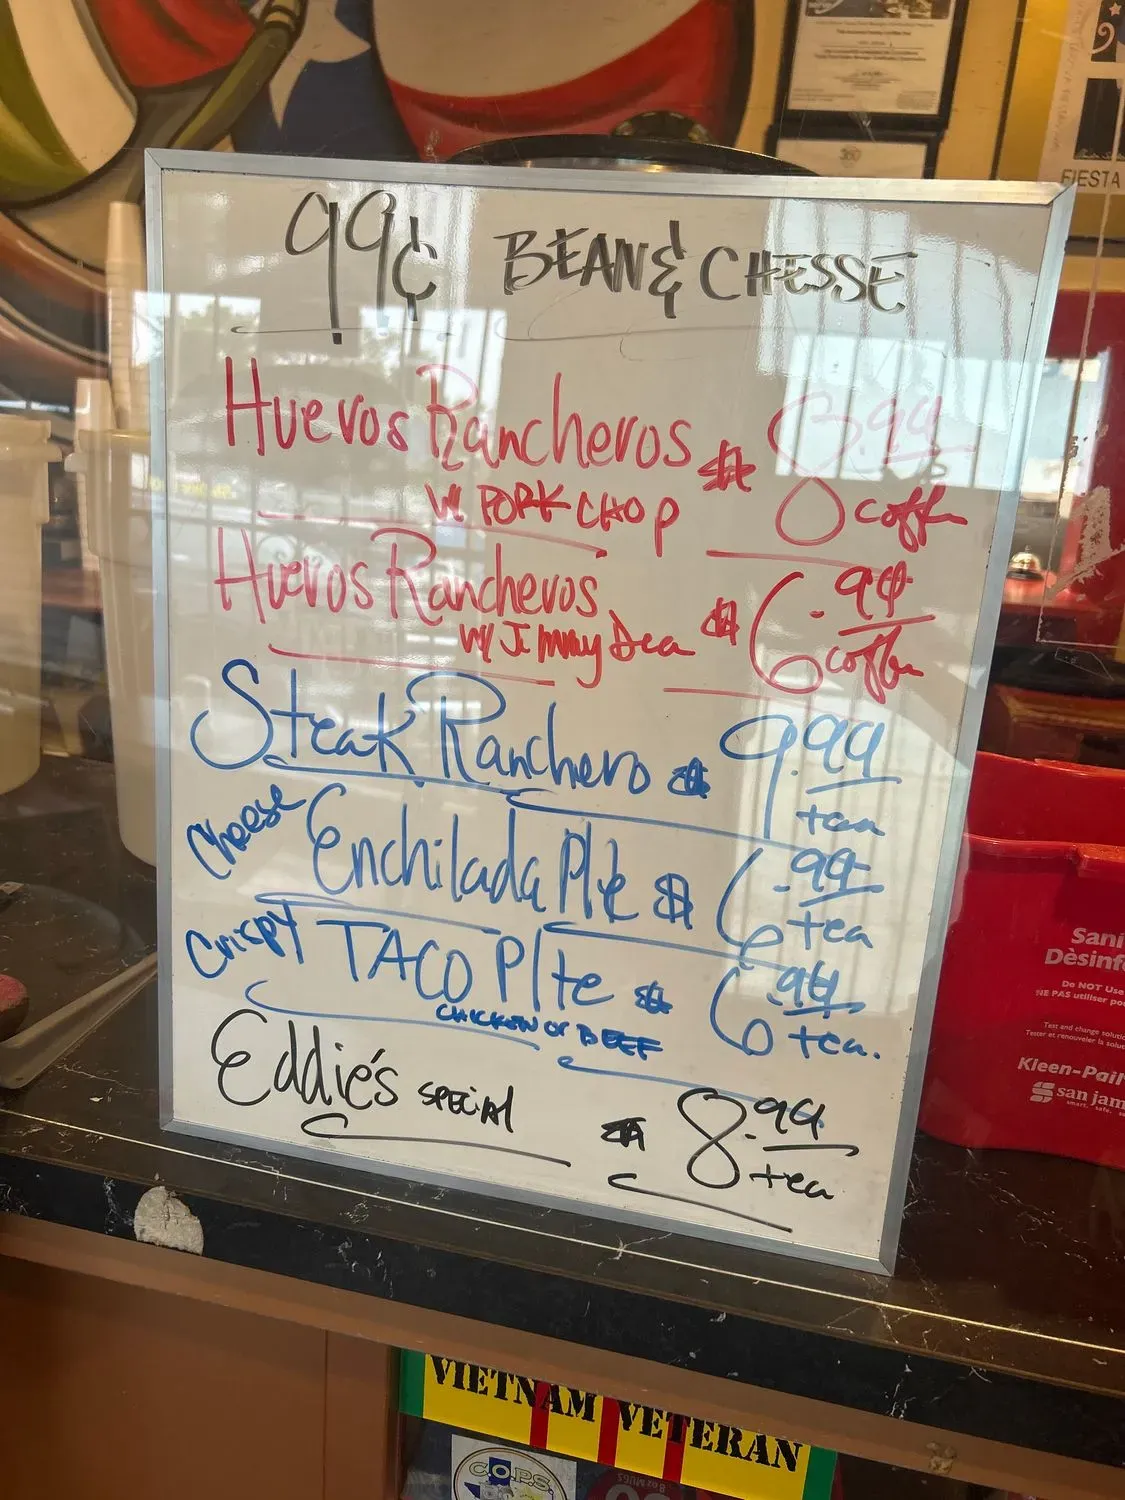 99¢ BEAN & CHESSE
Huevos Rancheros $ 8.99
w/ PORK CHOP coffee
Huevos Rancheros $ 6.99
w/ Jimmy Dea coffee
Steak Ranchero $ 9.99
tea
Cheese Enchilada Plte $ 6.99
tea
Crispy TACO Plte $ 6.99
CHICKEN or BEEF tea.
Eddie's SPECIAL $ 8.99
tea
FIESTA
Sani
Dèsinf
Do NOT Use
NE PAS utiliser po
Test and change soluti
Tester et renouveler la solu
Kleen-Pail
san jam
smart. safe. s
VIETNAM VETERAN
C.O.P.S.
8 oz MUGS